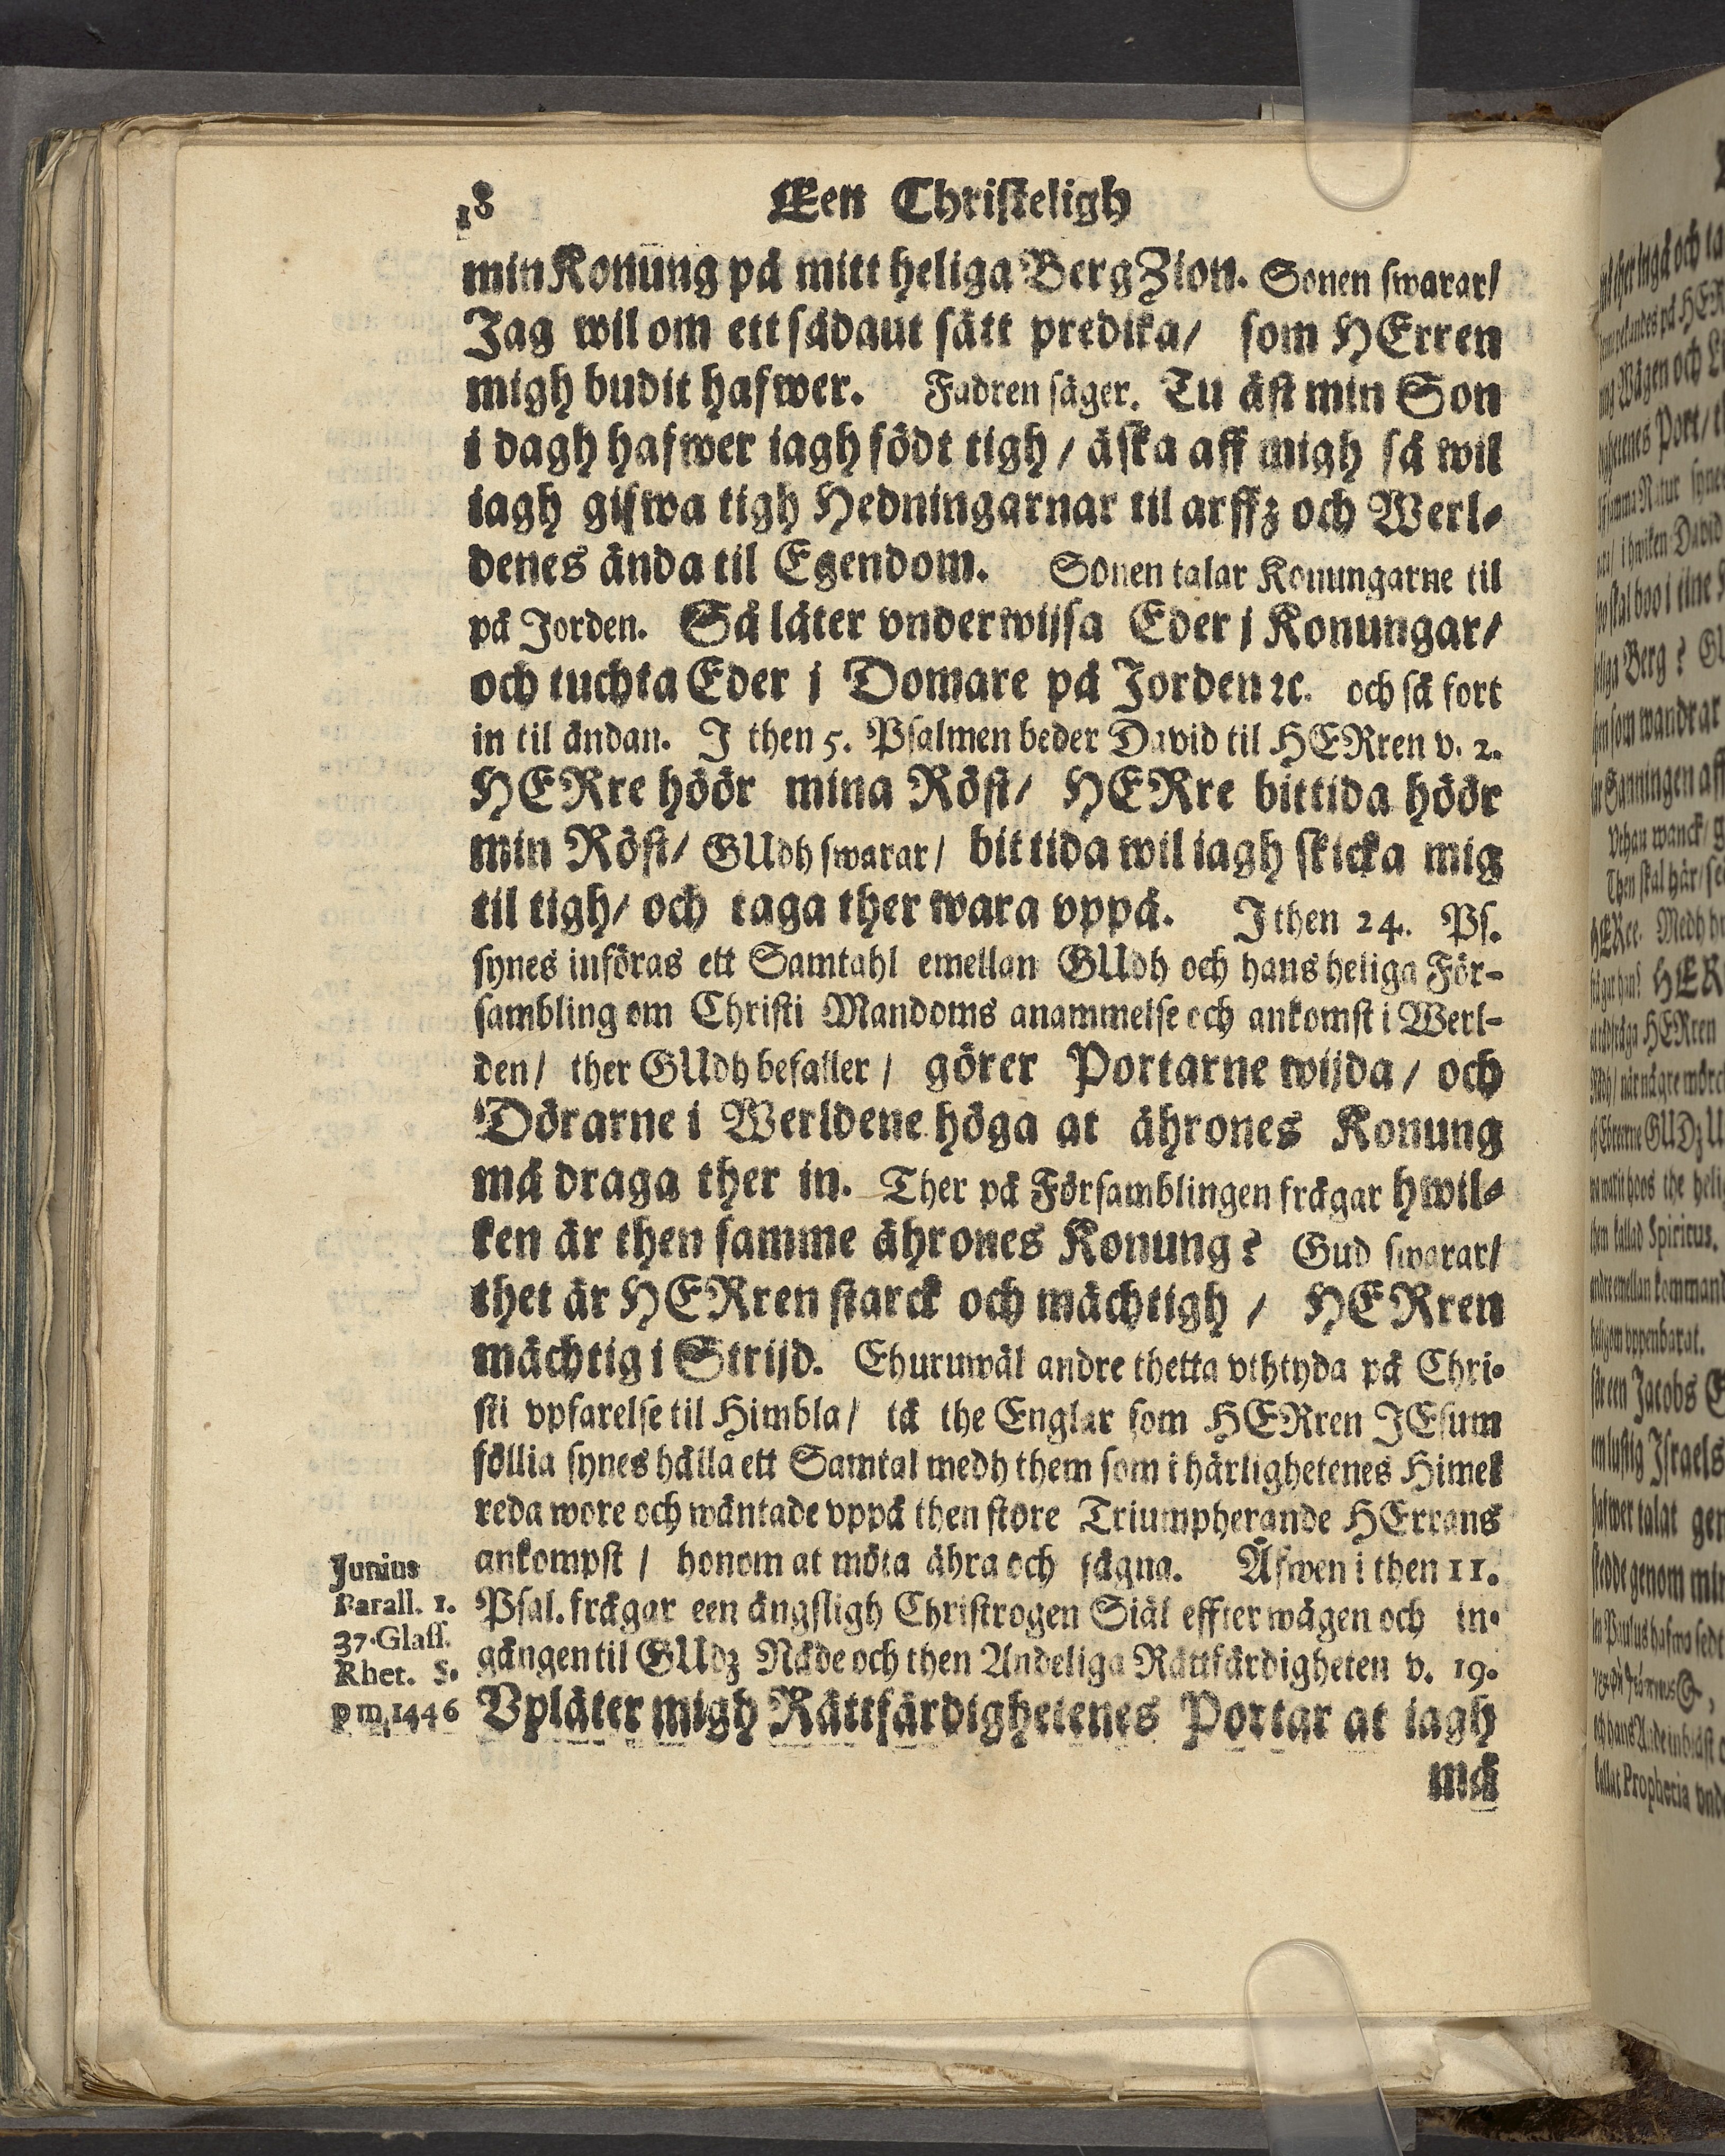 18 Een Christeligh
min Konung på mitt heliga Berg Zion. Sonen swarar/
Jag wil om ett sådaut sätt predika/ som HErren
migh budit hafwer. Fadren säger. Tu äst min Son
i dagh hafwer iagh födt tigh / äska aff migh så wil
iagh gifwa tigh Hedningarnar til arffz och Werl-
denes ända til Egendom. Sonen talar Konungarne til
på Jorden. Så låter vnderwijsa Eder j Konungar/
och tuchta Eder j Domare på Jorden ꝛc. och så fort
in til ändan. J then 5. Psalmen beder David til HERren v. 2.
HERre höör mina Röst/ HERre bittida höör
min Röst/ GUdh swarar/ bittida wil iagh skicka mig
til tigh/ och taga ther wara vppå. J then 24. Ps.
synes införas ett Samtahl emellan GUdh och hans heliga För-
sambling om Christi Mandoms anammelse och ankomst i Werl-
den/ ther GUdh befaller / görer Portarne wijda / och
Dörarne i Werldene höga at ährones Konung
må draga ther in. Ther på Församblingen frågar hwil-
ken är then samme ährones Konung? Gud swarar/
thet är HERren starck och mächtigh / HERren
mächtig i Strijd. Ehuruwäl andre thetta vthtyda på Chri-
sti vpfarelse til Himbla/ tå the Englar som HERren JEsum
föllia synes hålla ett Samtal medh them som i härlighetenes Himel
reda wore och wäntade vppå then store Triumpherande HErrans
ankompst / honom at möta ähra och fägna. Äfwen i then 11.
Psal. frågar een ängsligh Christrogen Siäl effter wägen och in-
gången til GUdz Nåde och then Andeliga Rättfärdigheten v. 19.
Vplåter migh Rättfärdighetenes Portar at iagh
må
Junius
Parall. 1.
37. Glass.
Rhet. S.
p m. 1446